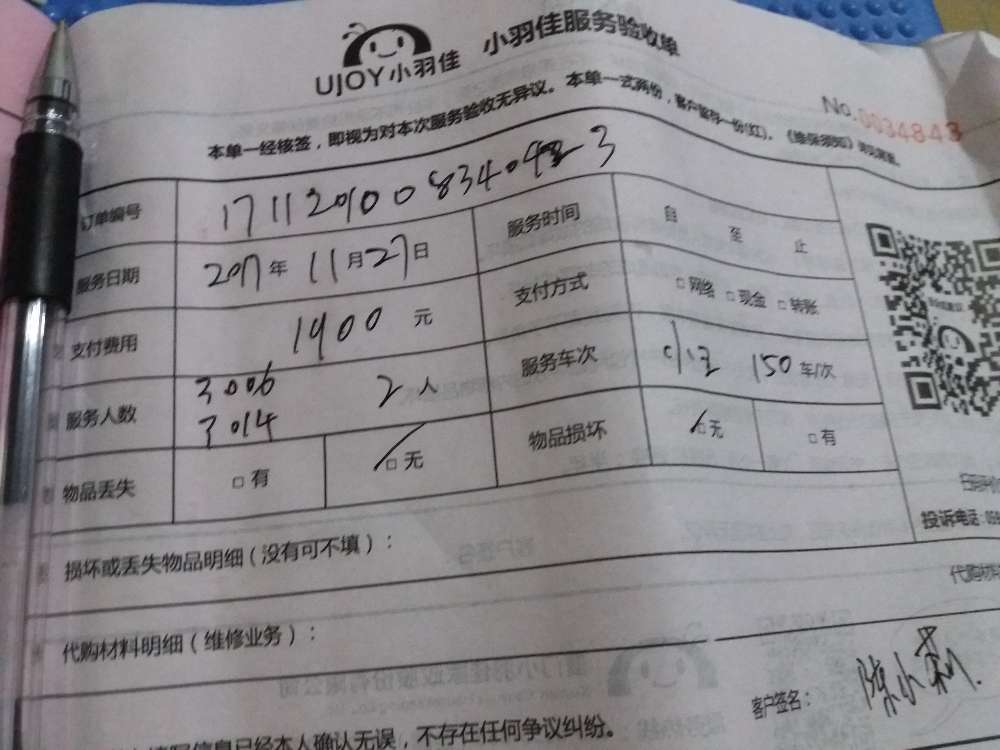 UJOY小羽佳 小羽佳服务验收单
本单一经核签，即视为对本次服务验收无异议。本单一式两份，客户留存一份(红)。《维保须知》
No.0034843
订单编号
服务日期 2017年 11月27日 服务时间 自 至 止
支付费用 1400 元 支付方式 □网络 □现金 □转账
服务人数 3006 3014 2人 服务车次 150 车/次
物品丢失 □有 □无 物品损坏 □无 □有
投诉电话:
损坏或丢失物品明细（没有可不填）：
代购材料
代购材料明细（维修业务）：
客户签名：
信息已经本人确认无误，不存在任何争议纠纷。